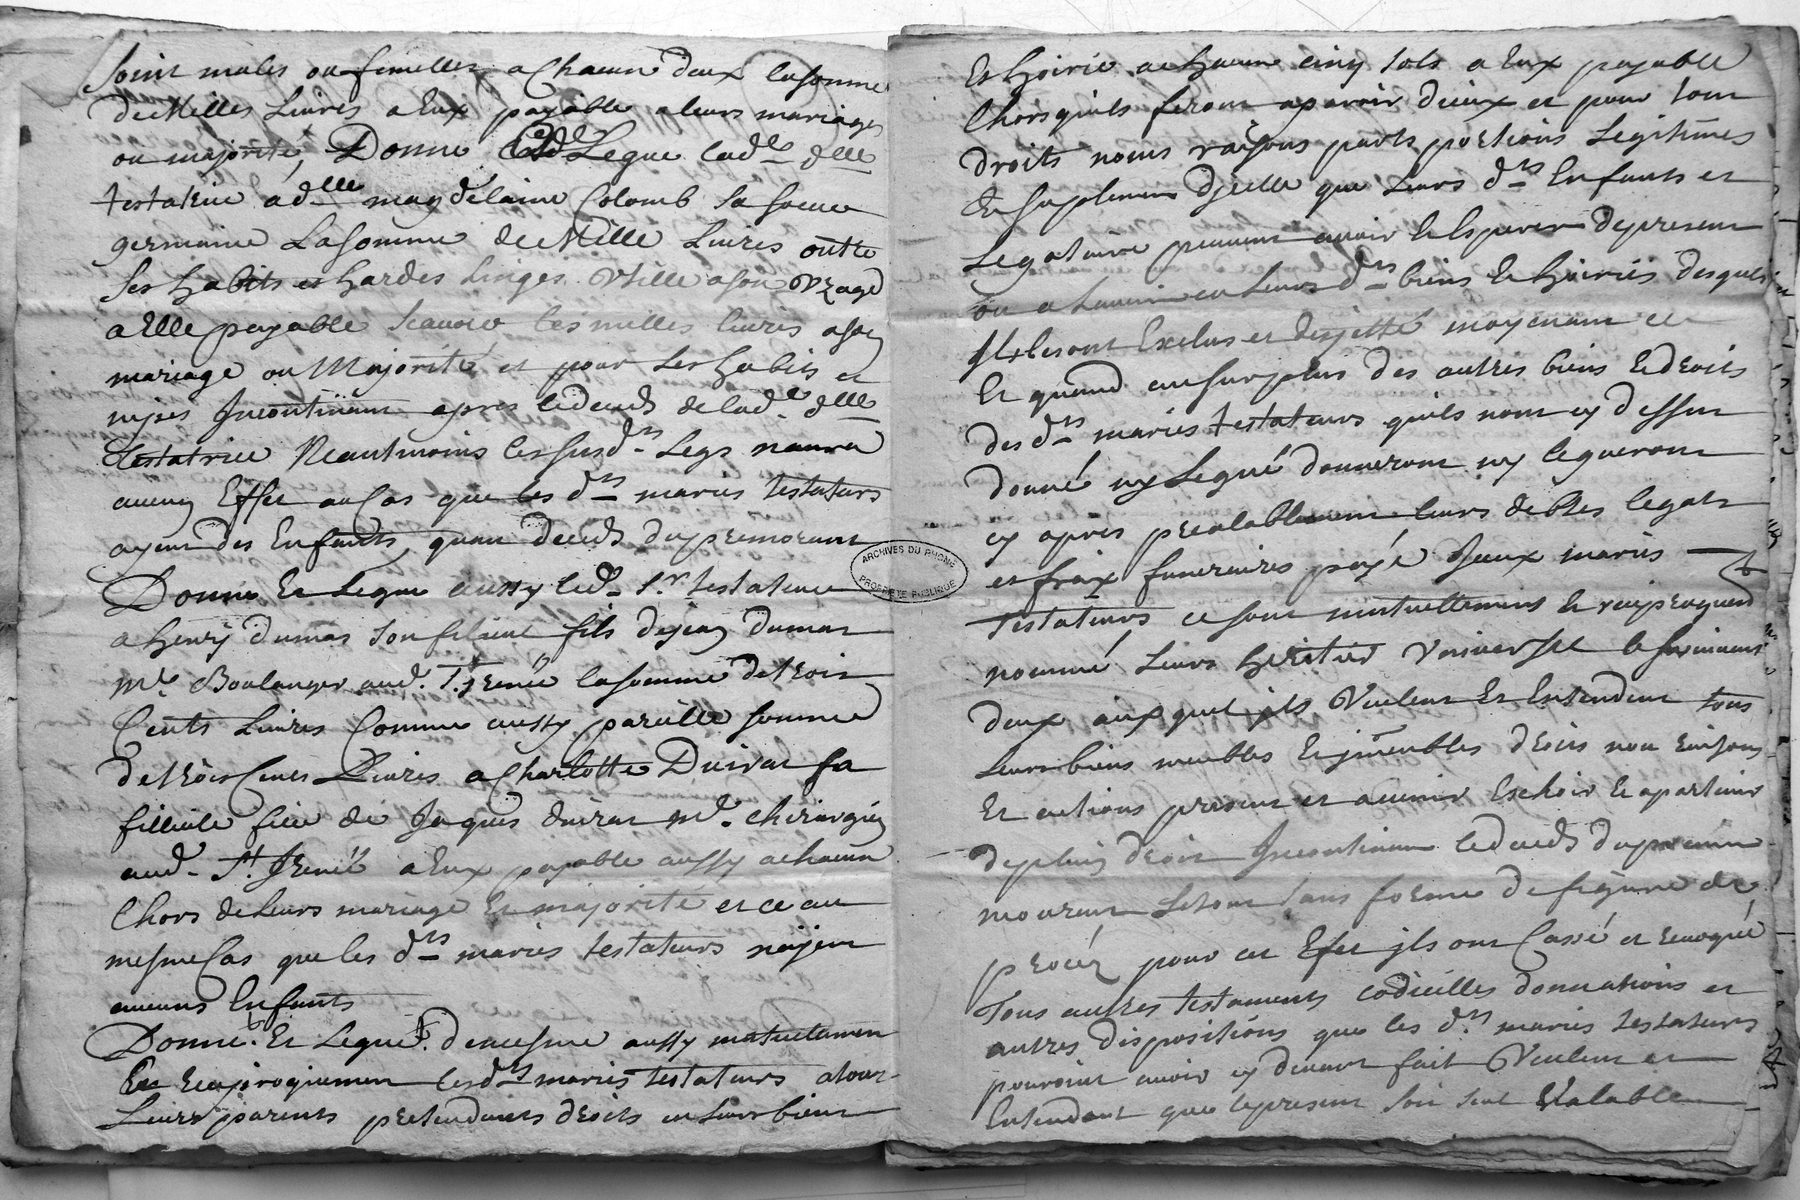 Soint males ou femelles a Chacun deux la somme
de Milles Livres a Eux payable a leurs mariages
ou majorité, Donne Et Legue lad.e d.lle
testatrice à d.lle magdelaine Colomb sa soeur
germaine La somme de Mille Livres outre
ses habits et hardes linges Utille a son Uzage
a Elle payable scauoir les milles liures a son
mariage ou Majorité et pour les habits et
nipes Incontinant apres le deceds de lad.e d.lle
testatrice Neantmoins les susd.ts Legs naura
aucun Effet au Cas que les d.ts mariés testateurs
ayent des Enfants, quau deceds du premourant
Donne Et Legue aussy led. Sr. testateur
a henry dumas son filieul fils de jean dumas
M.e Boulanger aud. St jrenée la somme de trois
Cents Liures Comme aussy pareille somme
de trois Cents Liures a Charlotte Duivat sa
fillieule fille de Jaques duivat M.e chirurgien
aud. St. Jrenée a Eux payable aussy a chacun
Lhors de leurs mariage Et majorité et ce au
mesme Cas que les d.ts mariés testateurs nayent
aucuns Enfants
Donné Et Legué de mesme aussy mutuelamen
Et reciproquemen lesd.ts mariés testateurs a tous
Leurs parents pretendants droits en leurs biens
Et hoirie a chacun cinq sols a Eux payable
Lhors quils feront aparoir d'iceux et pour tous
droits noms raisons parts portions Legitimes
En suplement d'jcelle que leurs d.ts Enfants et
Legataire peuuent auoir et Esperer de present
ou a Lauenir en Leurs d.ts biens Et hoiries desquels
jls les ont Exclus et dejetté moyenant ce
Et quand au surplus des autres biens Et droits
des d.ts mariés testateurs quils nont cy dessus
donné ny Legué donneront ny legueront
cy apres prealablement leurs debtes legats
et fraix funeraires payé Jceux mariés
testateurs ce sont mutuellement Et reciproquem
nommé Leurs heritier Vniversel le suruiuant
deux auxquel jls Veulent Et Entendent tous
Leurs biens meubles Et jmeubles droits nom raisons
Et actions present et auenir Eschoir Et apartenir
de plein droit Incontinant le deceds du premier
mourant Le tout sans forme de figure de
procéz pour cet Efet jls ont Cassé et reuoqué
Tous autres testaments codicilles donnations et
autres dispositions que les d.ts mariés testateurs
pouroint auoir cy deuant fait Veulent et
Entendent que le present soit seul Valable
ARCHIVES DU RHONE
PROPRIÉTÉ PUBLIQUE